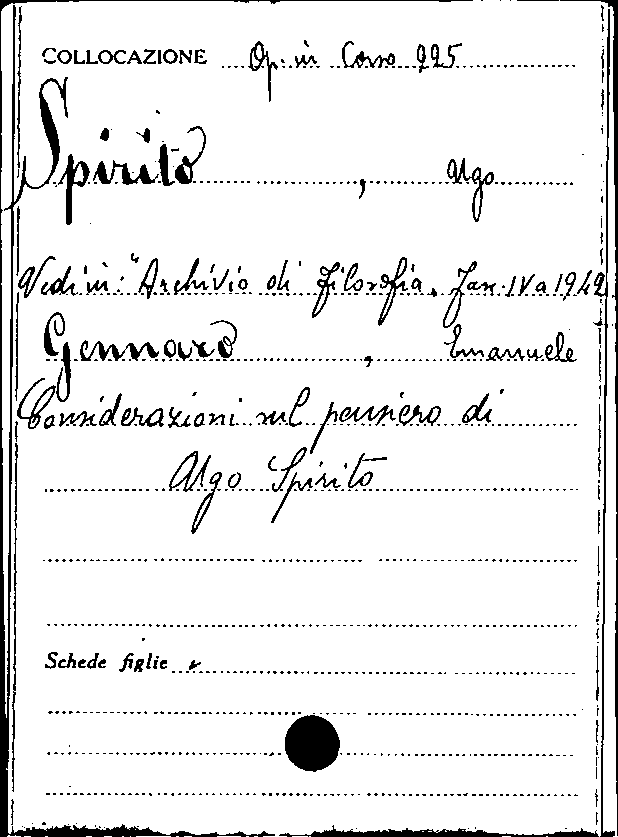 COLLOCAZIONE Op. in Corso 225
Spirito, Ugo
Vedi in: "Archivio di Filosofia, Fasc. IV a 1942
Gennaro, Emanuele
Considerazioni sul pensiero di
Ugo Spirito
Schede figlie